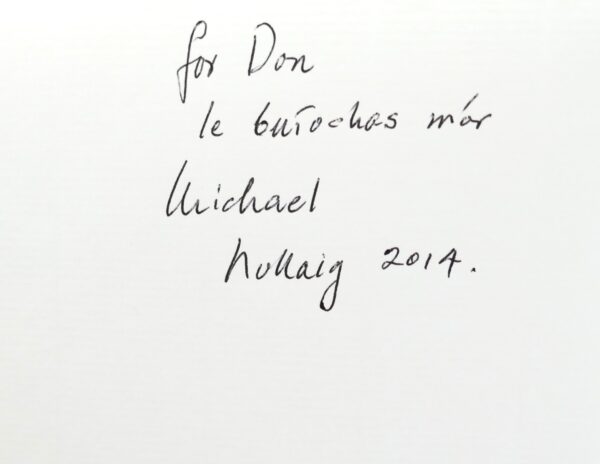 for Don
le buíochas mór
Michael
Nollaig 2014.